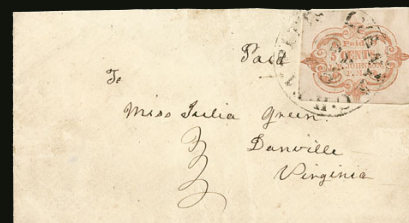 Paid
Paid
To
Miss Julia Green
Danville
Virginia